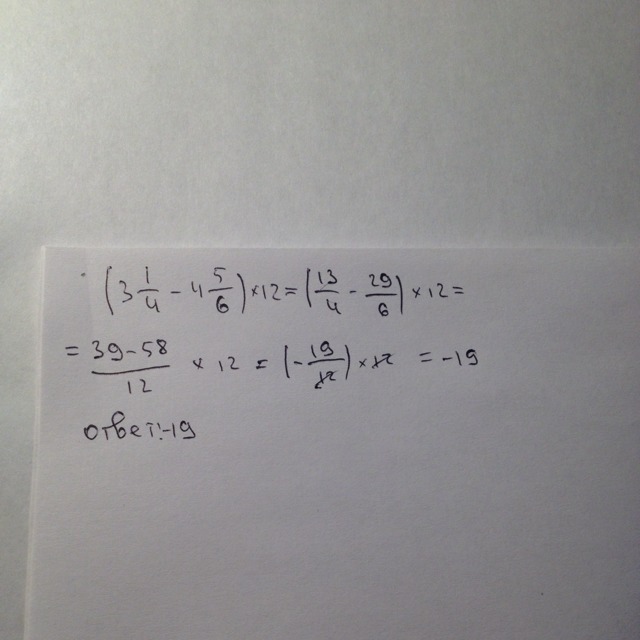 (3 1/4 - 4 5/6) × 12 = (13/4 - 29/6) × 12 =
= (39-58)/12 × 12 = (-19/12) × 12 = -19
Ответ: -19